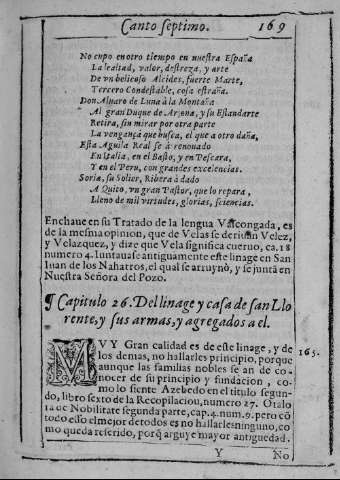 Canto septimo. 169
No cupo en otro tiempo en nuestra España
La lealtad, valor, destreza, y arte
De vn belicoso Alcides, fuerte Marte,
Tercero Condestable, cosa estraña.
Don Aluaro de Luna à la Montaña
Al gran Duque de Arjona, y su Estandarte
Retira, sin mirar por otra parte
La vengança que busca, el que a otro daña,
Esta Aguila Real se à renouado
En Italia, en el Basto, y en Pescara,
Y en el Peru, con grandes excelencias.
Soria, su Solier, Ribera à dado
A Quito, vn gran Pastor, que lo repara,
Lleno de mil virtudes, glorias, sciencias.
Enchaue en su Tratado de la lengua Vascongada, es
de la mesma opinion, que de Velas se deriuan Velez,
y Velazquez, y dize que Vela significa cueruo, ca.18
numero 4. Iuntauase antiguamente este linage en San
Iuan de los Naharros, el qual se arruynò, y se junta en
Nuestra Señora del Pozo.
¶ Capitulo 26. Del linage y casa de san Llo
rente, y sus armas, y agregados a el.
MVY Gran calidad es de este linage, y de
los demas, no hallarles principio, porque
aunque las familias nobles se an de co-
nocer de su principio y fundacion, co-
mo lo siente Azebedo en el titulo segun-
do, libro sexto de la Recopilacion, numero 27. Otalo
ra de Nobilitate segunda parte, cap.4. num.9. pero cõ
todo esso el mejor de todos es no hallarles ninguno, co
mo queda referido, porq̃ arguye mayor antiguedad.
165.
Y No